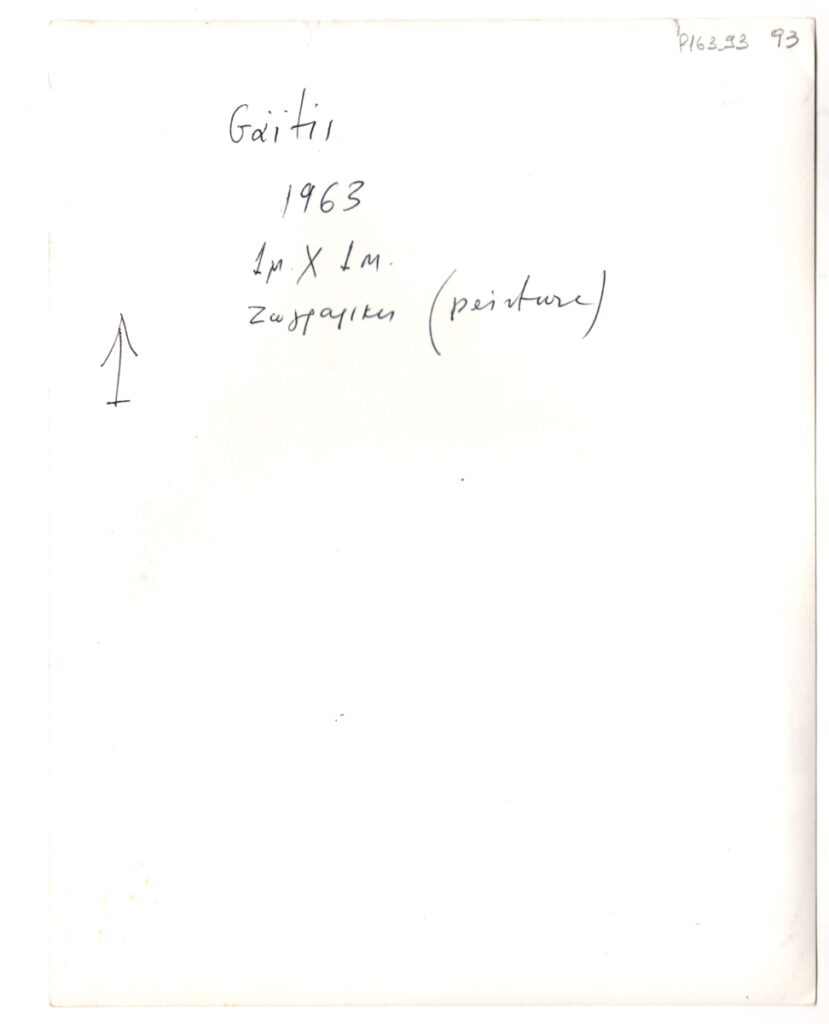 P163_93 93
Gaïtis
1963
1μ. X 1μ.
Ζωγραφικη (peinture)